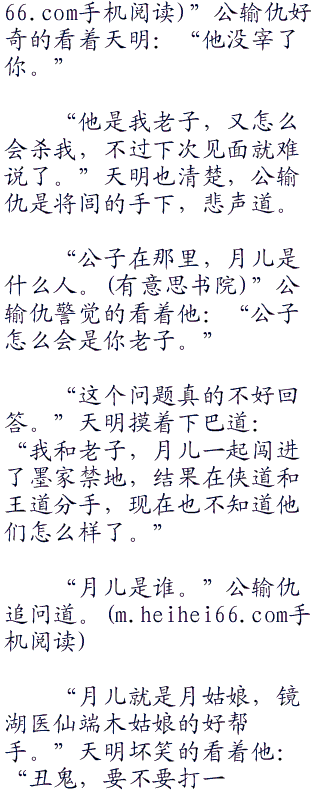 66.com手机阅读)”公输仇好
奇的看着天明：“他没宰了
你。”
“他是我老子，又怎么
会杀我，不过下次见面就难
说了。”天明也清楚，公输
仇是将闾的手下，悲声道。
“公子在那里，月儿是
什么人。(有意思书院)”公
输仇警觉的看着他：“公子
怎么会是你老子。”
“这个问题真的不好回
答。”天明摸着下巴道：
“我和老子，月儿一起闯进
了墨家禁地，结果在侠道和
王道分手，现在也不知道他
们怎么样了。”
“月儿是谁。”公输仇
追问道。(m.heihei66.com手
机阅读)
“月儿就是月姑娘，镜
湖医仙端木姑娘的好帮
手。”天明坏笑的看着他：
“丑鬼，要不要打一